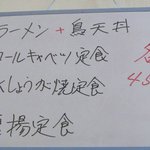 ラーメン + 鳥天丼
ロールキャベツ定食
しょうが焼定食
揚定食